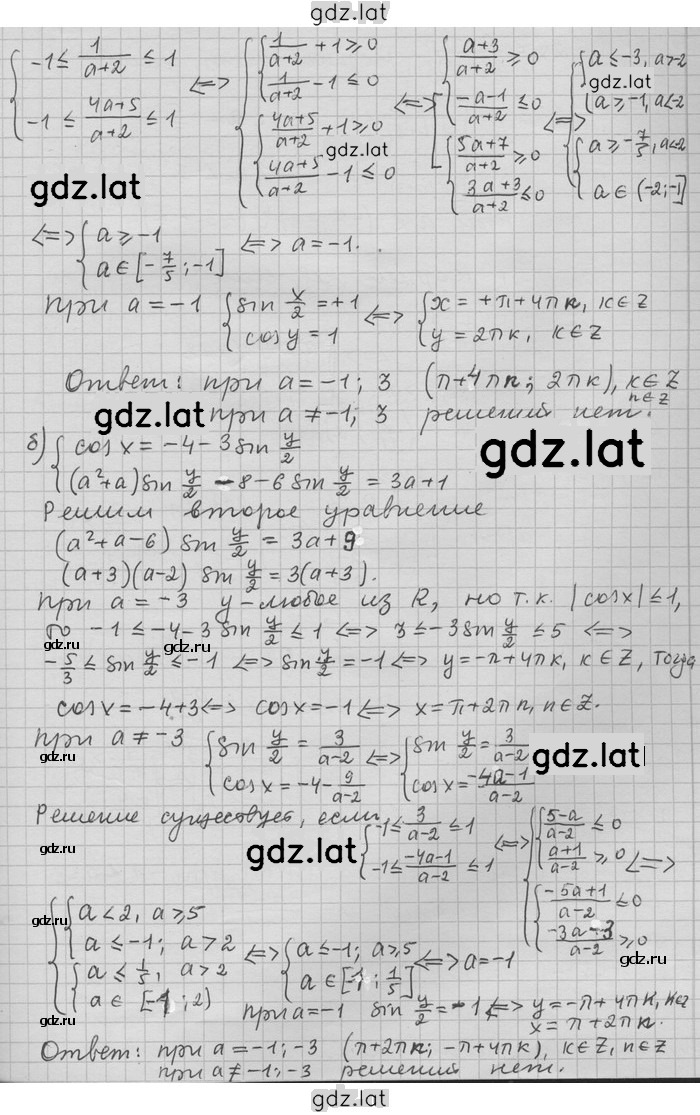 gdz.lat
{ -1 ≤ 1/(a+2) ≤ 1 ; -1 ≤ (4a+5)/(a+2) ≤ 1 <=> { { 1/(a+2) + 1 ≥ 0 ; 1/(a+2) - 1 ≤ 0 ; { (4a+5)/(a+2) + 1 ≥ 0 ; (4a+5)/(a+2) - 1 ≤ 0 <=> { (a+3)/(a+2) ≥ 0 ; (-a-1)/(a+2) ≤ 0 ; { (5a+7)/(a+2) ≥ 0 ; (3a+3)/(a+2) ≤ 0 <=> { { a ≤ -3, a > -2 ; a ≥ -1, a < -2 ; { a ≥ -7/5, a < -2 ; a ∈ (-2; -1]
gdz.lat
gdz.lat
gdz.lat
<=> { a ≥ -1 ; a ∈ [-7/5; -1] <=> a = -1.
при a = -1 { sin x/2 = +1 ; cos y = 1 <=> { x = +π + 4πn, k ∈ Z ; y = 2πk, k ∈ Z
Ответ: при a = -1; 3 (π + 4πn; 2πk), k ∈ Z
n ∈ Z
gdz.lat при a ≠ -1; 3 решений нет.
б) { cos x = -4 - 3 sin y/2
(a² + a) sin y/2 - 8 - 6 sin y/2 = 3a + 1
gdz.lat
Решим второе уравнение
(a² + a - 6) sin y/2 = 3a + 9
(a+3)(a-2) sin y/2 = 3(a+3).
при a = -3 y - любое из R, но т.к. |cos x| ≤ 1,
то -1 ≤ -4 - 3 sin y/2 ≤ 1 <=> 3 ≤ -3 sin y/2 ≤ 5 <=>
-5/3 ≤ sin y/2 ≤ -1 <=> sin y/2 = -1 <=> y = -π + 4πk, k ∈ Z, тогда
cos x = -4 + 3 <=> cos x = -1 <=> x = π + 2πn, n ∈ Z.
при a ≠ -3 { sin y/2 = 3/(a-2) ; cos x = -4 - 9/(a-2) <=> { sin y/2 = 3/(a-2) ; cos x = (-4a-1)/(a-2)
gdz.lat
gdz.lat
Решение существует, если { -1 ≤ 3/(a-2) ≤ 1 ; -1 ≤ (-4a-1)/(a-2) ≤ 1 <=> { { (5-a)/(a-2) ≤ 0 ; (a+1)/(a-2) ≥ 0 ; { (-5a+1)/(a-2) ≤ 0 ; (-3a-3)/(a-2) ≥ 0 <=>
gdz.lat
gdz.lat
{ { a < 2, a ≥ 5 ; a ≤ -1; a > 2 ; { a ≤ 1/5, a > 2 ; a ∈ [-1; 2) <=> { a ≤ -1; a ≥ 5 ; a ∈ [-1; 1/5] <=> a = -1
gdz.lat
gdz.lat
при a = -1 sin y/2 = -1 <=> y = -π + 4πk, k∈Z
x = π + 2πn.
Ответ: при a = -1; -3 (π + 2πn; -π + 4πk), k ∈ Z, n ∈ Z
gdz.lat
при a ≠ -1; -3 решений нет.
gdz.lat